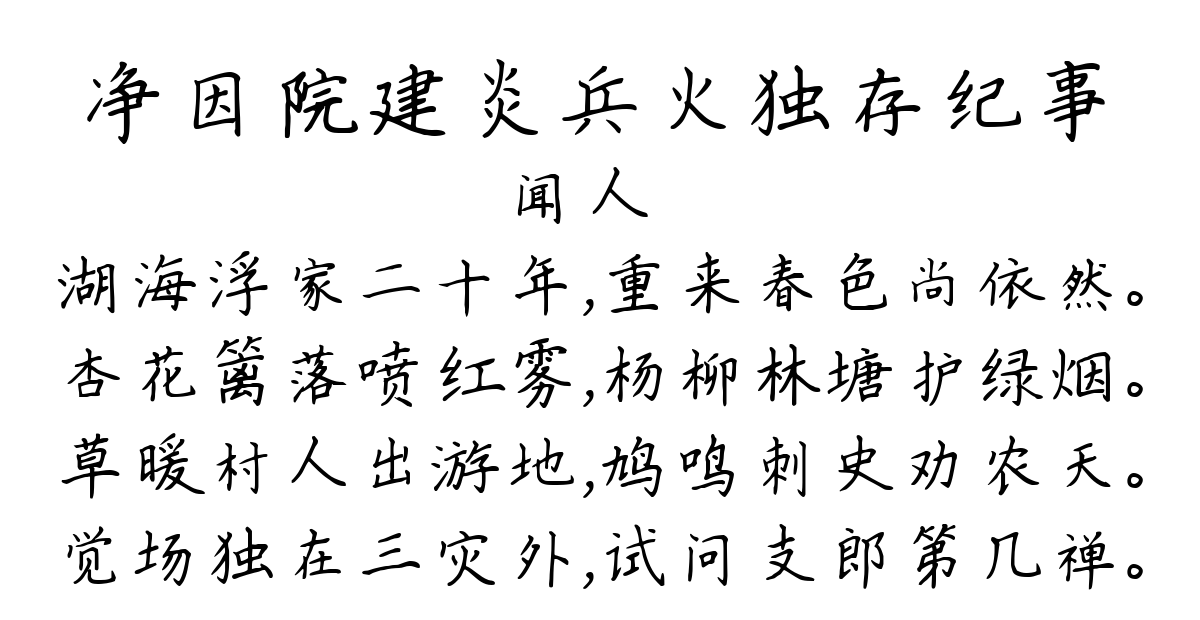 净因院建炎兵火独存纪事
闻人
湖海浮家二十年,重来春色尚依然。
杏花篱落喷红雾,杨柳林塘护绿烟。
草暖村人出游地,鸠鸣刺史劝农天。
觉场独在三灾外,试问支郎第几禅。